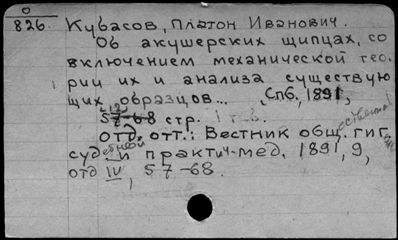 0
826. Кубасов, Платон Иванович.
Об акушерских щипцах, со
включением механической тео-
рии их и анализа существую
щих образцов... Спб, 1891,
(12)
57-68 стр.
отд. отт.: Вестник общественной гиг.
судебной и практич. мед. 1891, 9,
отд IV, 57-68.